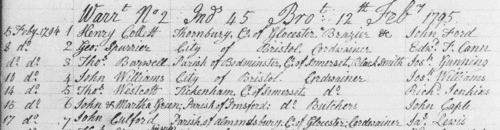 Warrt. No 2 Ind 45 Brot. 12th Feby 1795
5 Feby. 1794 1 Henry Collett Thornbury, Co. of Glocester Brazier &c John Ford
8 do. 2 Geo: Spurrier City of Bristol Cordwainer Edwd. T. Cann
do do. 3 Thos. Barwell Parish of Bedminster, C. of Somerset, Black Smith Jos: Gunning
10 do. 4 John Williams City of Bristol Cordwainer Jos: Williams
14 do 5 Thos. Westcott Tickenham, C. of Somerset do Richd. Jenkins
15 do 6 John & Martha Green; Parish of do Butchers John Caple
17 do. 7 John Parish of almondsbury, C. of Glocester; Cordwainer Jas: Lewis